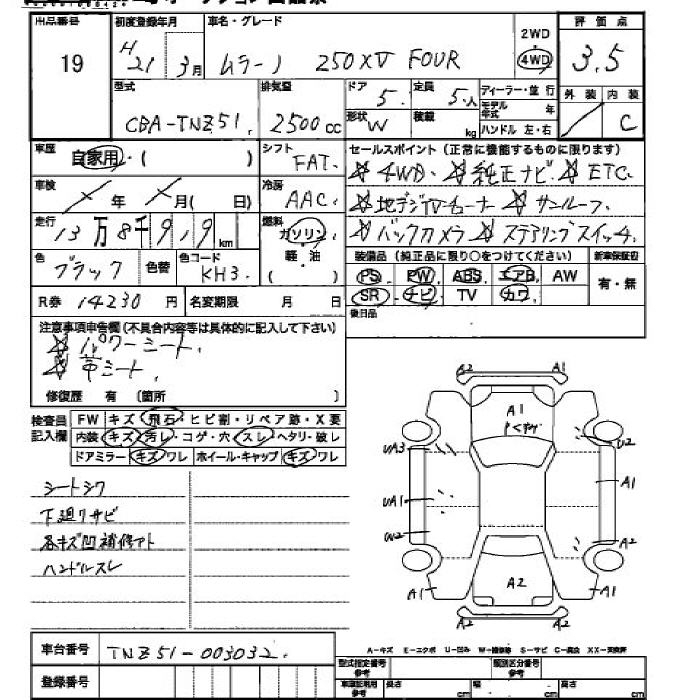 出品番号 初度登録年月 車名・グレード 2WD・4WD 評価点
19 H21年3月 ムラーノ 250XV FOUR 3.5
型式 排気量 ドア 5. 定員 5人 ディーラー・並行 外装 内装
CBA-TNZ51. 2500cc 形状 W 積載 kg モデル年式 年 ハンドル 左・右 C
車歴 自家用・( ) シフト FAT. セールスポイント (正常に機能するものに限ります)
☆4WD、☆純正ナビ ☆ETC.
車検 年 月( 日) 冷房 AAC. ☆地デジTVチューナー ☆サンルーフ.
走行 13万8千919km 燃料 ガソリン・軽・油 ( ) ☆バックカメラ ☆ステアリングスイッチ.
色 ブラック 色替 色コード KH3. 装備品 (純正品に限り○をつけてください) 新車保証書
PS PW ABS エアB AW 有・無
R券 14230円 名変期限 月 日 SR ナビ TV カワ
後日品
注意事項申告欄(不具合内容等は具体的に記入して下さい)
☆パワーシート.
☆革シート.
修復歴 有 (箇所 )
検査員記入欄 FW キズ・飛石・ヒビ割・リペア跡・X要
内装・キズ・汚レ・コゲ・穴・スレ・ヘタリ・破レ
ドアミラー・キズ・ワレ ホイール・キャップ・キズ・ワレ
シートシワ
下廻リサビ
各キズ凹補修アト
ハンドルスレ
A2 A1
A1
UA3 U2
A1
UA1
W2 A2
A2
A1 A1
A2 A2
A-キズ E-エクボ U-凹み W-補修跡 S-サビ C-腐食 XX-交換済
車台番号 TNZ51-003032.
登録番号
型式指定番号 参考 類別区分番号 参考
車庫証明用 参考 長さ cm 幅 cm 高さ cm